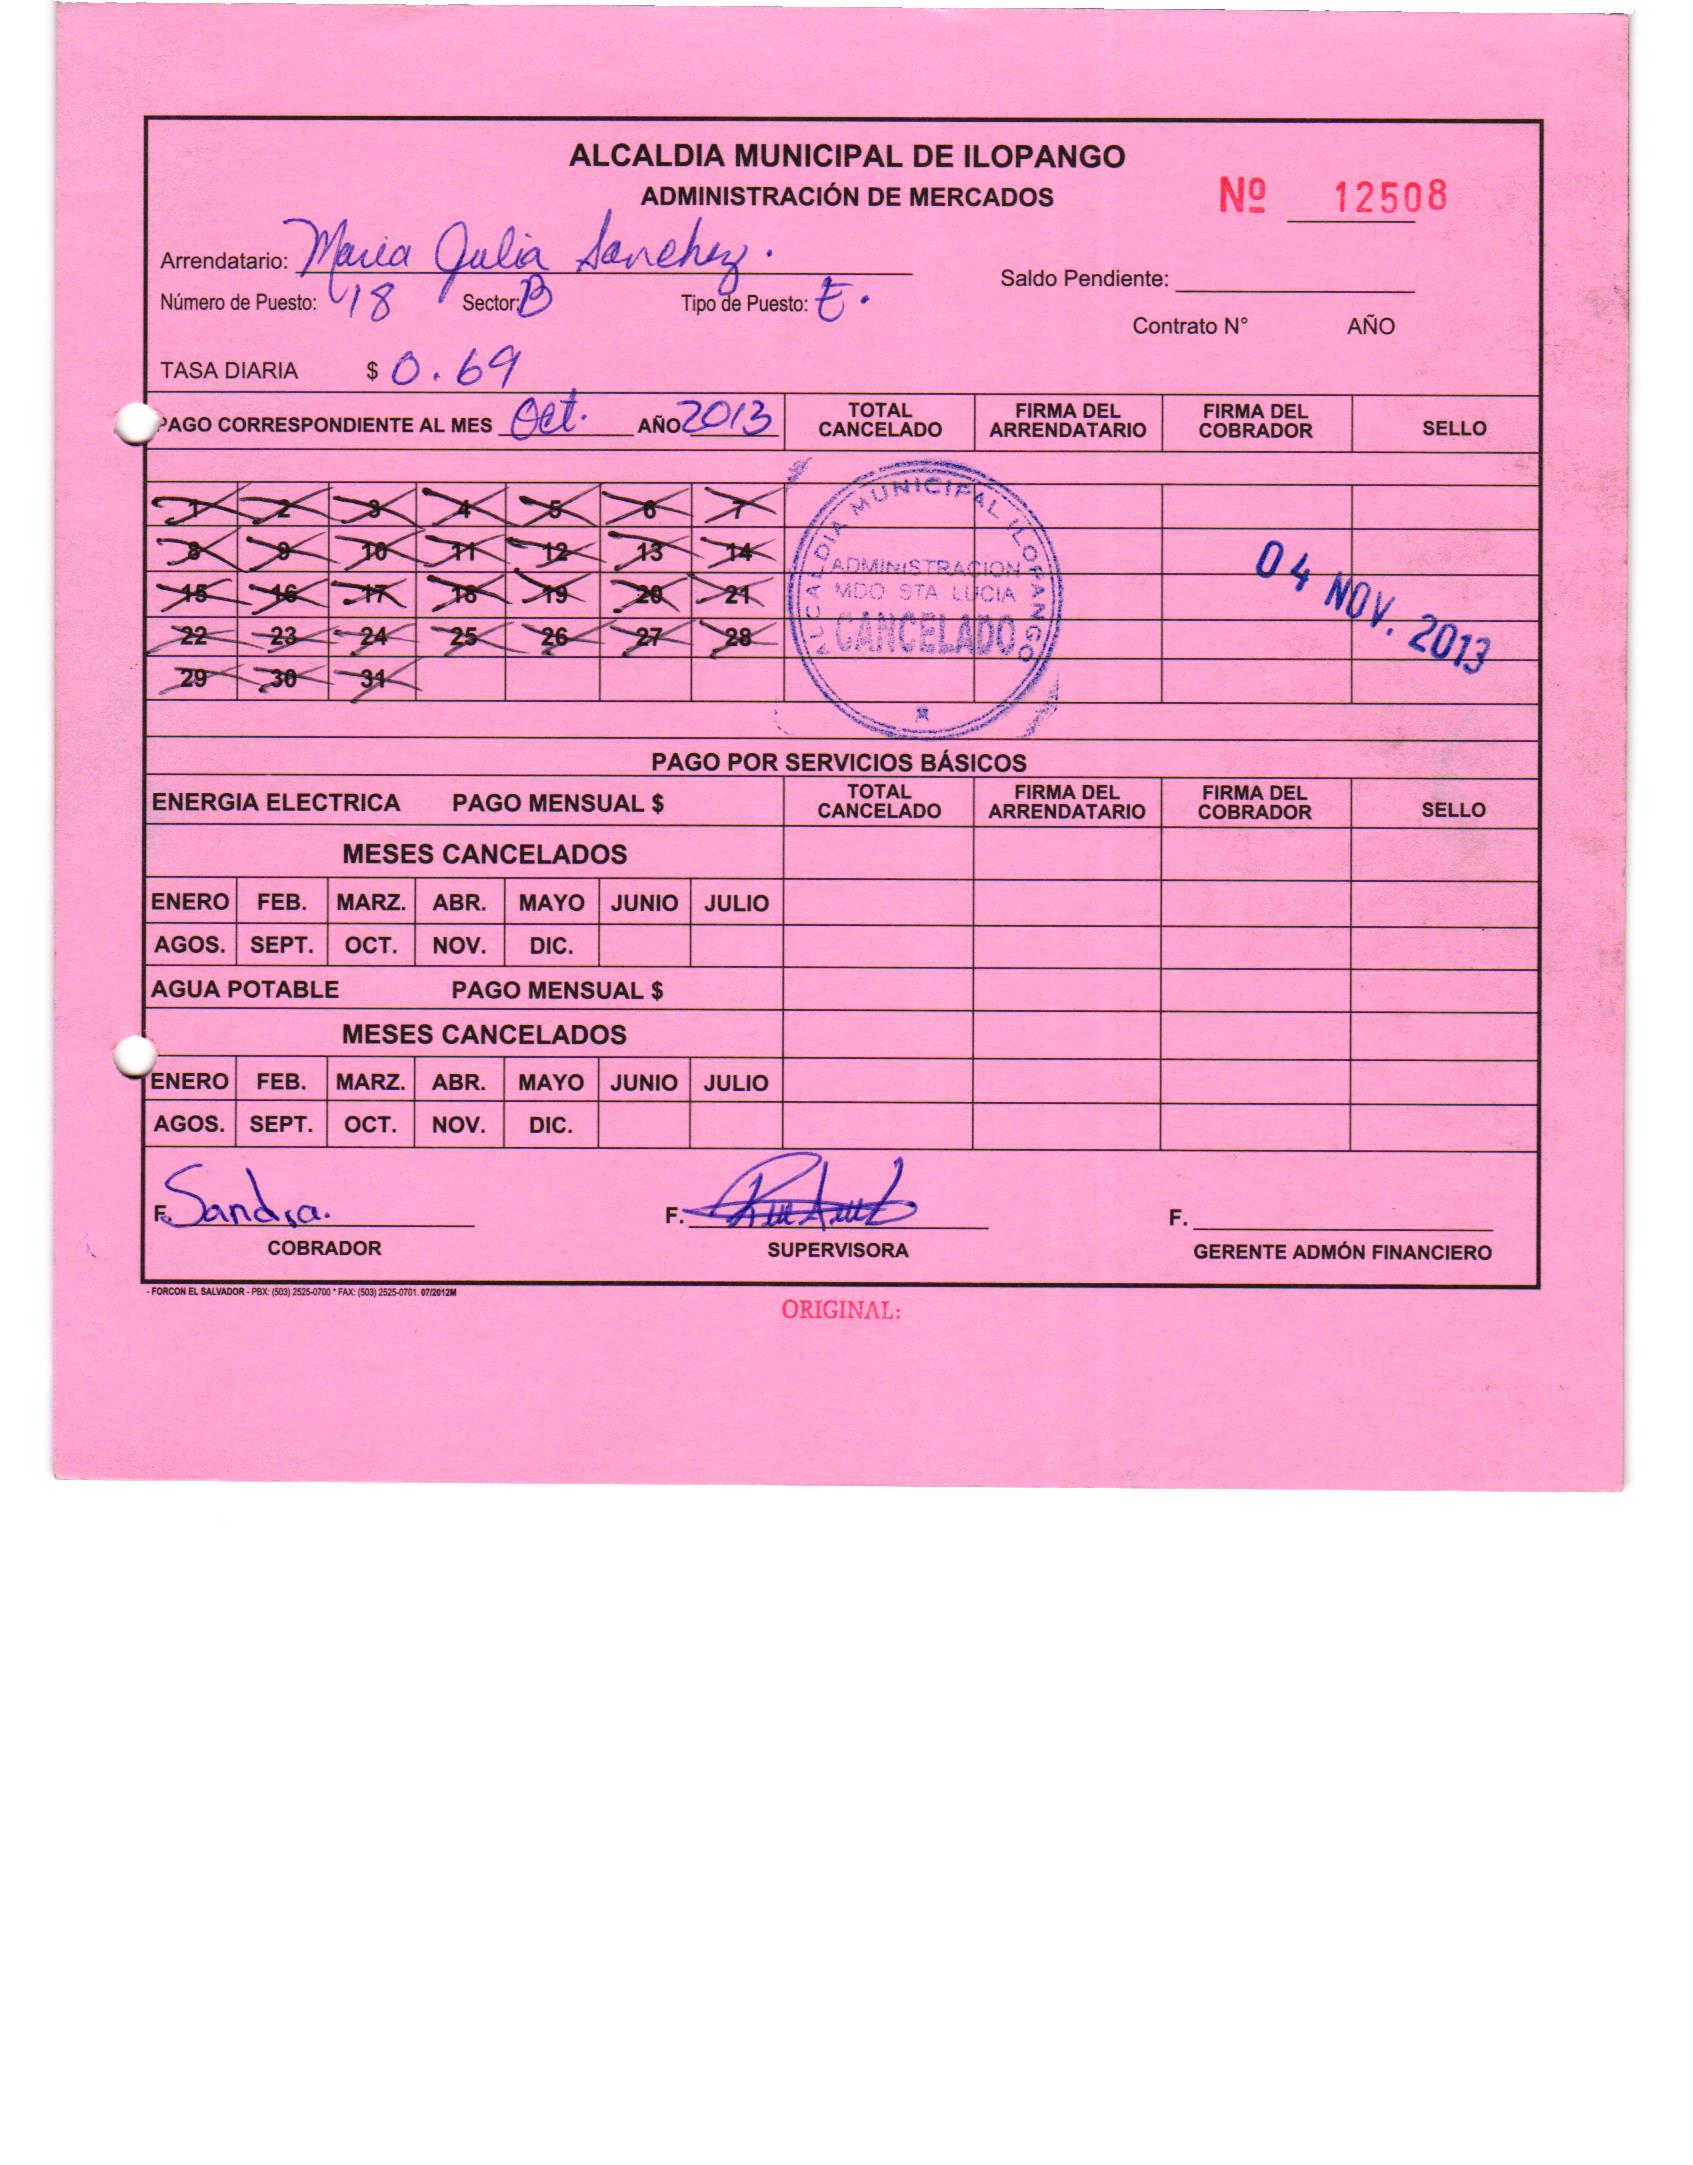 ALCALDIA MUNICIPAL DE ILOPANGO
ADMINISTRACIÓN DE MERCADOS
Nº 12508
Arrendatario: Maria Julia Sanchez.
Saldo Pendiente:
Número de Puesto: 18 Sector: B Tipo de Puesto: E.
Contrato N° AÑO
TASA DIARIA $ 0.69
PAGO CORRESPONDIENTE AL MES Oct. AÑO 2013 TOTAL CANCELADO FIRMA DEL ARRENDATARIO FIRMA DEL COBRADOR SELLO
1 2 3 4 5 6 7
8 9 10 11 12 13 14
15 16 17 18 19 20 21
22 23 24 25 26 27 28
29 30 31
ALCALDIA MUNICIPAL ILOPANGO
ADMINISTRACION
MDO STA LUCIA
CANCELADO
04 NOV. 2013
PAGO POR SERVICIOS BÁSICOS
ENERGIA ELECTRICA PAGO MENSUAL $ TOTAL CANCELADO FIRMA DEL ARRENDATARIO FIRMA DEL COBRADOR SELLO
MESES CANCELADOS
ENERO FEB. MARZ. ABR. MAYO JUNIO JULIO
AGOS. SEPT. OCT. NOV. DIC.
AGUA POTABLE PAGO MENSUAL $
MESES CANCELADOS
ENERO FEB. MARZ. ABR. MAYO JUNIO JULIO
AGOS. SEPT. OCT. NOV. DIC.
F. Sandra. F. F.
COBRADOR SUPERVISORA GERENTE ADMÓN FINANCIERO
- FORCON EL SALVADOR - PBX: (503) 2525-0700 * FAX: (503) 2525-0701. 07/2012M
ORIGINAL: